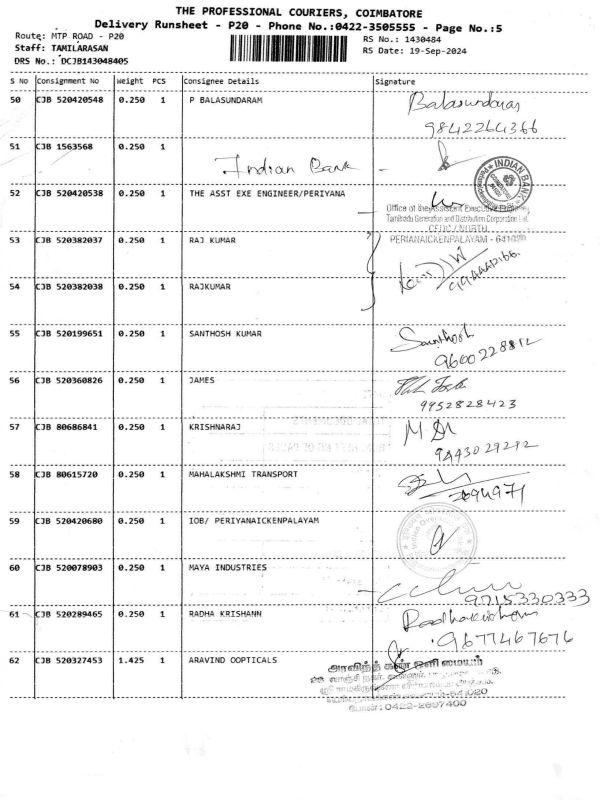 THE PROFESSIONAL COURIERS, COIMBATORE
Delivery Runsheet - P20 - Phone No.:0422-3505555 - Page No.:5
Route: MTP ROAD - P20
Staff: TAMILARASAN
DRS No.: DCJB143048405
RS No.: 1430484
RS Date: 19-Sep-2024
S No Consignment No Weight PCS Consignee Details Signature
50 CJB 520420548 0.250 1 P BALASUNDARAM Balasundaram
9842264366
51 CJB 1563568 0.250 1 Indian Bank -
INDIAN BANK
52 CJB 520420538 0.250 1 THE ASST EXE ENGINEER/PERIYANA
Office of the Assistant Executive Engineer
Tamilnadu Generation and Distribution Corporation Ltd.
CEDC / NORTH
PERIANAICKENPALAYAM - 641020
53 CJB 520382037 0.250 1 RAJ KUMAR
54 CJB 520382038 0.250 1 RAJKUMAR
55 CJB 520199651 0.250 1 SANTHOSH KUMAR Santhosh
9600228812
56 CJB 520360826 0.250 1 JAMES
9952828423
57 CJB 80686841 0.250 1 KRISHNARAJ
9443029292
58 CJB 80615720 0.250 1 MAHALAKSHMI TRANSPORT
59 CJB 520420680 0.250 1 IOB/ PERIYANAICKENPALAYAM
60 CJB 520078903 0.250 1 MAYA INDUSTRIES
9715330333
61 CJB 520289465 0.250 1 RADHA KRISHANN Radhakrishnan
9677467676
62 CJB 520327453 1.425 1 ARAVIND OOPTICALS
அரவிந்த் கண் ஒளி மையம்
போன் : 0422-2697400